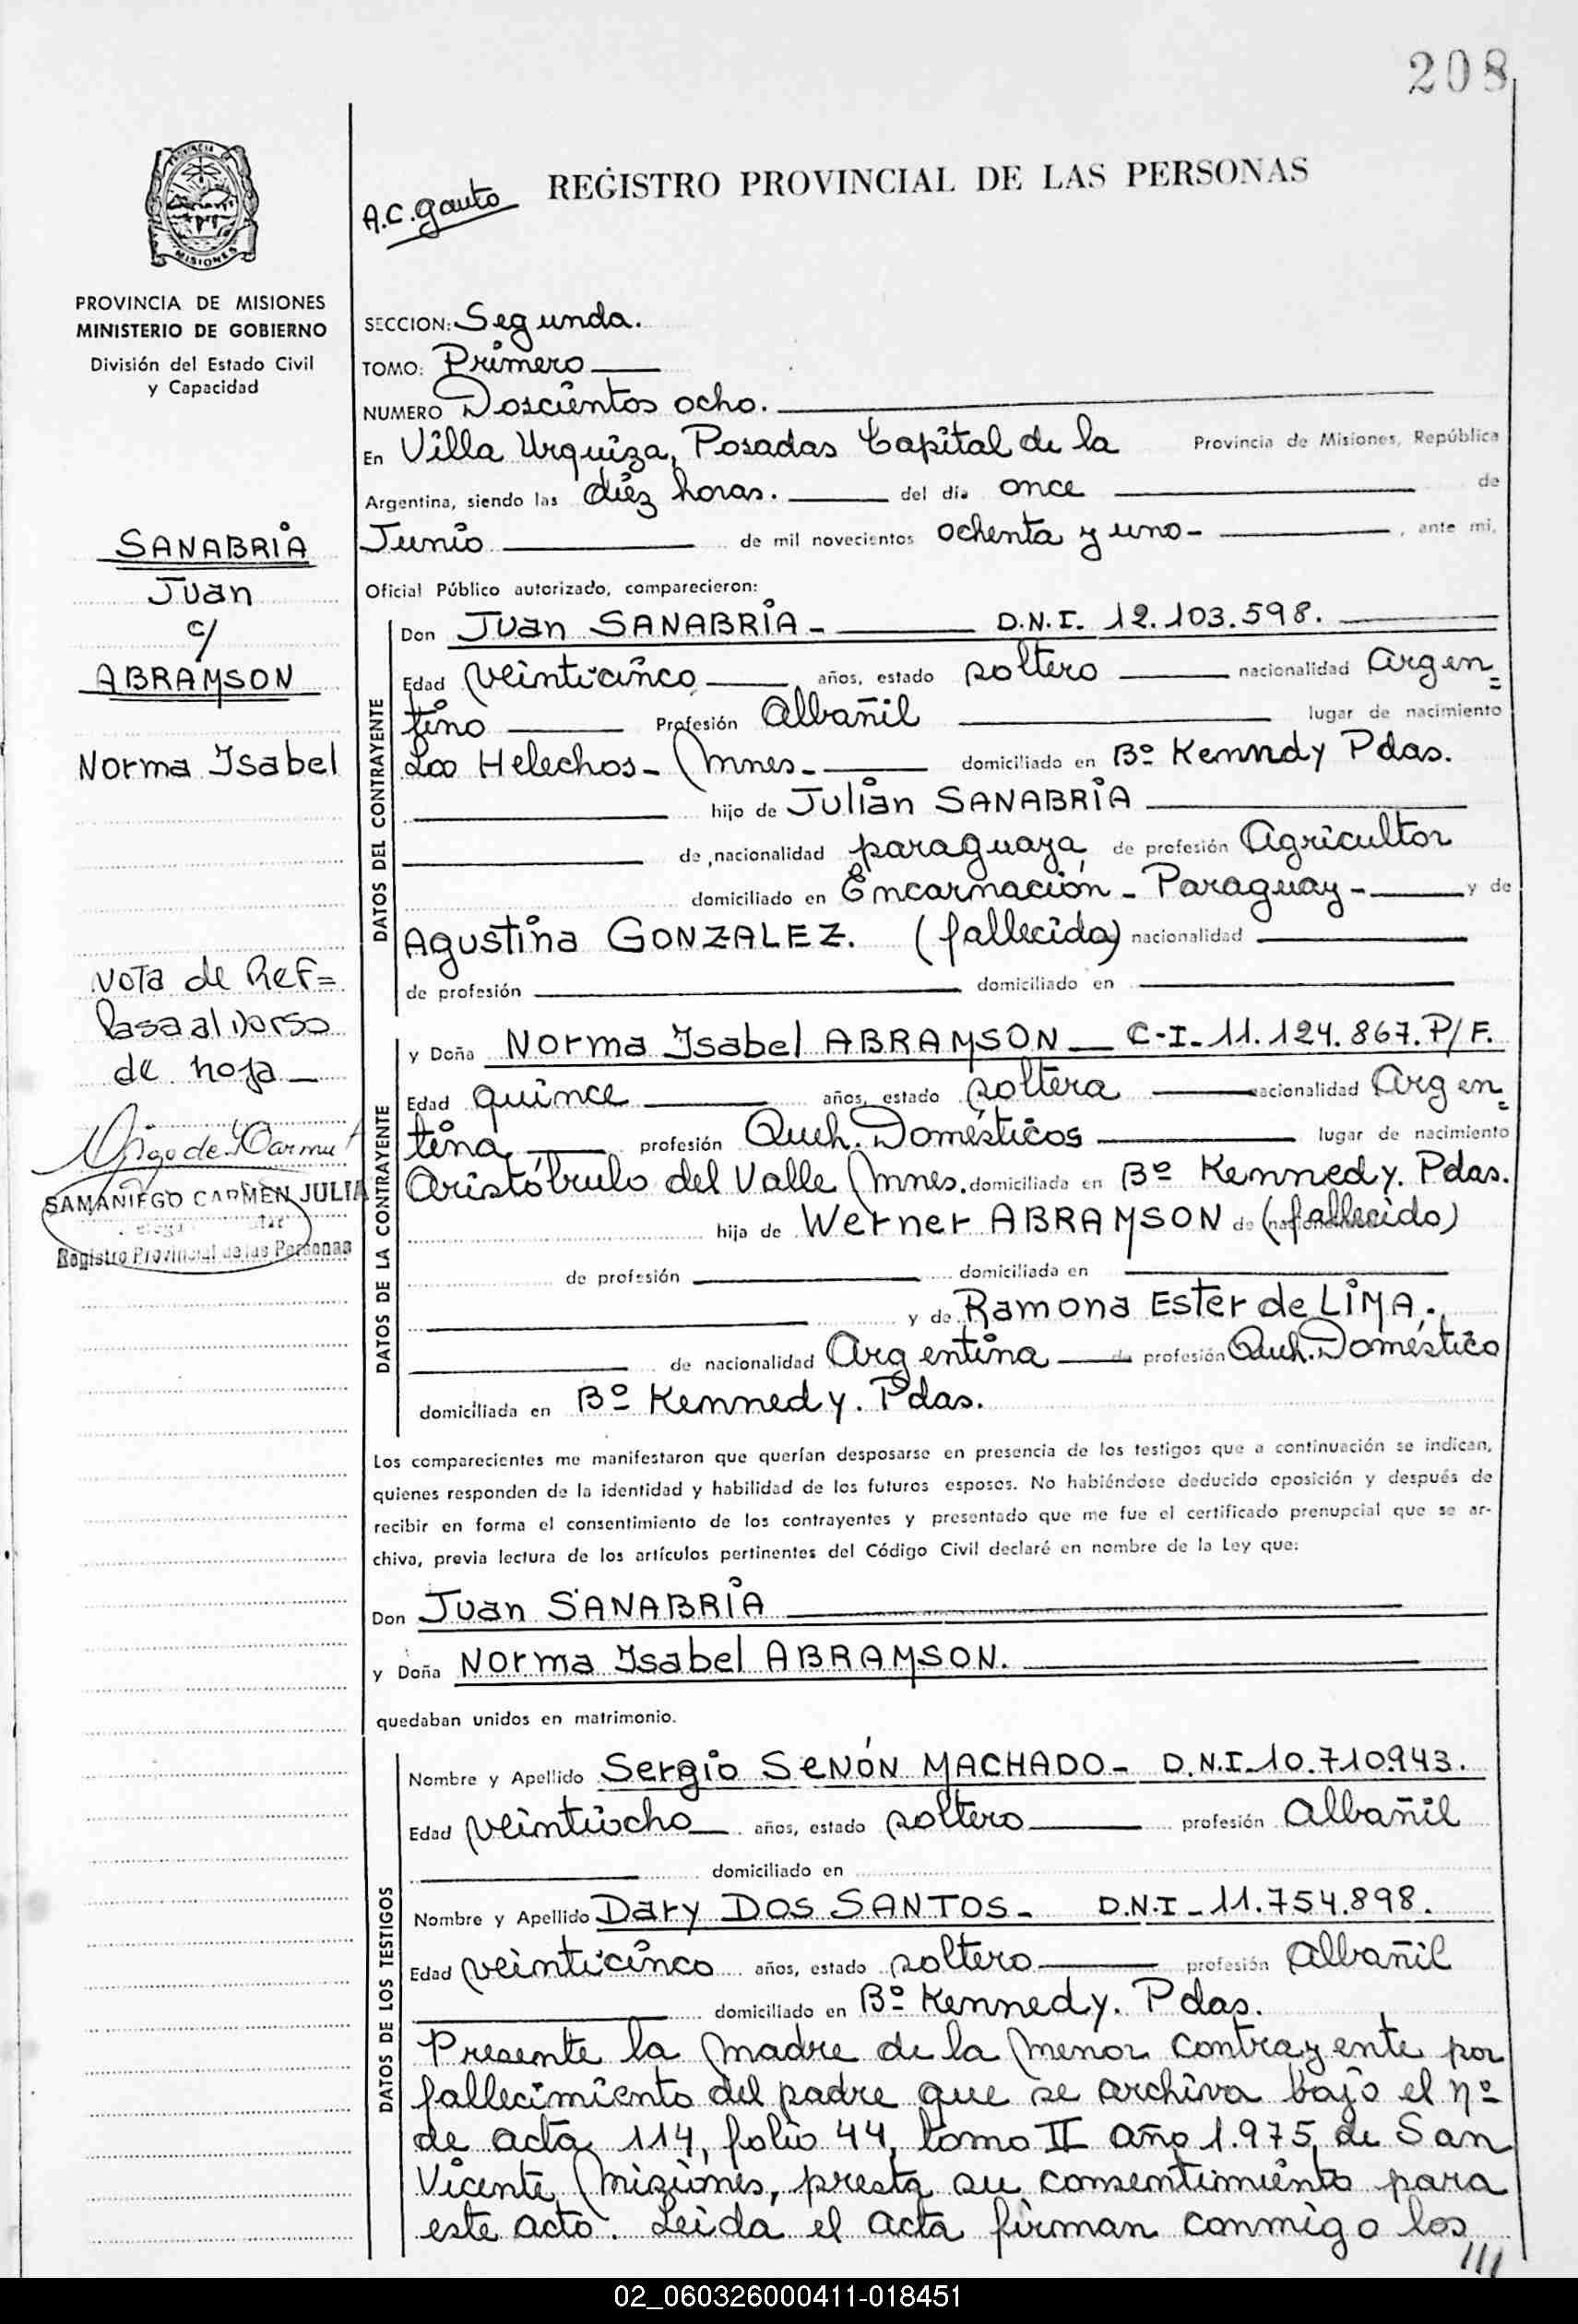 208
A.C. Gauto
REGISTRO PROVINCIAL DE LAS PERSONAS
PROVINCIA
MISIONES
PROVINCIA DE MISIONES
MINISTERIO DE GOBIERNO
División del Estado Civil
y Capacidad
SECCION: Segunda.
TOMO: Primero
NUMERO Doscientos ocho.
En Villa Urquiza, Posadas Capital de la Provincia de Misiones, República
Argentina, siendo las diez horas. del día once de
Junio de mil novecientos ochenta y uno- , ante mi,
Oficial Público autorizado, comparecieron:
SANABRIA
Juan
c/
ABRAMSON
Norma Isabel
Nota de Ref=
Pasa al Dorso
de hoja
SAMANIEGO CARMEN JULIA
Registro Provincial de las Personas
DATOS DEL CONTRAYENTE
Don Juan SANABRIA - D.N.I. 12.103.598.
Edad veinticinco años, estado soltero nacionalidad Argen=
tino Profesión Albañil lugar de nacimiento
Los Helechos - Mnes - domiciliado en Bº Kenndy Pdas.
hijo de Julián SANABRIA
de nacionalidad paraguaya de profesión Agricultor
domiciliado en Encarnación - Paraguay - y de
Agustina GONZALEZ. (fallecida) nacionalidad
de profesión domiciliado en
DATOS DE LA CONTRAYENTE
y Doña Norma Isabel ABRAMSON C-I-11.124.867.P/F.
Edad quince años, estado soltera nacionalidad Argen=
tina profesión Queh. Domésticos lugar de nacimiento
Aristóbulo del Valle Mnes. domiciliada en Bº Kennedy. Pdas.
hija de Werner ABRAMSON de (fallecido)
de profesión domiciliada en
y de Ramona Ester de LIMA.
de nacionalidad Argentina de profesión Queh. Doméstico
domiciliada en Bº Kennedy. Pdas.
Los comparecientes me manifestaron que querían desposarse en presencia de los testigos que a continuación se indican,
quienes responden de la identidad y habilidad de los futuros esposos. No habiéndose deducido oposición y después de
recibir en forma el consentimiento de los contrayentes y presentado que me fue el certificado prenupcial que se ar-
chiva, previa lectura de los artículos pertinentes del Código Civil declaré en nombre de la Ley que:
Don Juan SANABRIA
y Doña Norma Isabel ABRAMSON.
quedaban unidos en matrimonio.
DATOS DE LOS TESTIGOS
Nombre y Apellido Sergio SENÓN MACHADO - D.N.I.10.710.943.
Edad veintiocho años, estado soltero profesión Albañil
domiciliado en
Nombre y Apellido Dary DOS SANTOS - D.N.I - 11.754.898.
Edad veinticinco años, estado soltero profesión Albañil
domiciliado en Bº Kennedy. Pdas.
Presente la madre de la menor contrayente por
fallecimiento del padre que se archiva bajo el nº
de acta 114, folio 44, tomo II año 1.975, de San
Vicente, Misiones, presta su consentimiento para
este acto. Leída el acta firman conmigo los
///
02_060326000411-018451